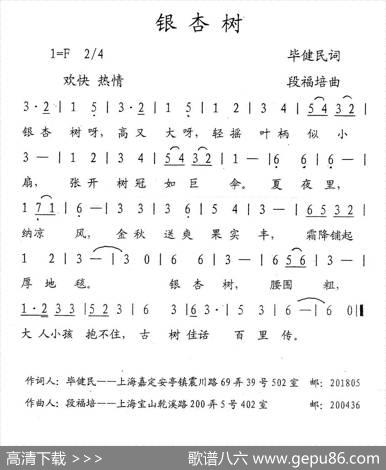 银杏树
1=F 2/4 毕健民词
欢快 热情 段福培曲
3·2 | 1 5 | 3·2 | 1 5 | 1 2 | 3 4 | 5 4 3 2 |
银杏 树呀, 高又 大呀, 轻摇 叶柄 似 小
3 — | 1 2 | 3 4 | 5 4 3 2 | 1 — | 6 6 | 6 — |
扇, 张开 树冠 如巨 伞。 夏夜里,
1 7 1 | 6 — | 3 3 | 3 4 | 5 3 | 3 — | 6 5 3 2 |
纳凉 风, 金秋 送爽 果实 丰, 霜降铺起
1 2 | 3 — | 3 0 | 6 6 | 3 — | 6 5 6 | 6 — |
厚地 毯。 银杏 树, 腰围 粗,
1·2 3 3 | 5 5 3 2 | 6 3 | 6 3·5 | 1 3 | 6 — | 6 0 ‖
大人小孩 抱不住, 古树 佳话 百里 传。
作词人: 毕健民——上海嘉定安亭镇震川路 69 弄 39 号 502 室 邮: 201805
作曲人: 段福培——上海宝山乾溪路 200 弄 5 号 402 室 邮: 200436
高清下载 >>> 歌谱八六 www.gepu86.com